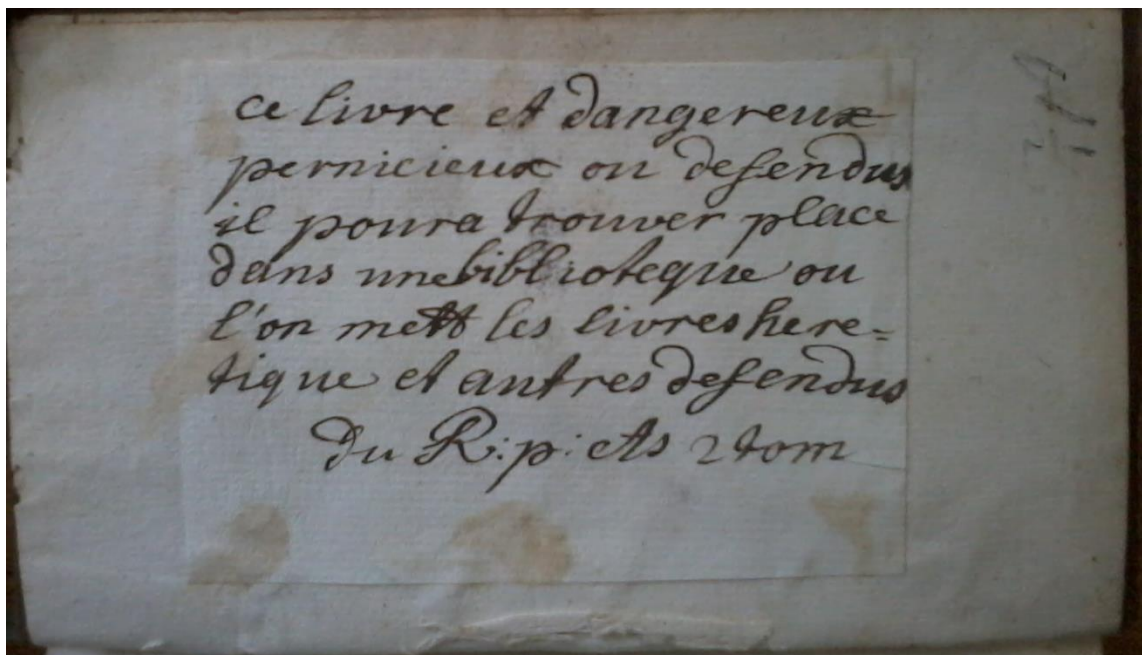 ce livre et dangereux
pernicieux ou defendus
il poura trouver place
dans une biblioteque ou
l'on mett les livres here=
tique et autres defendus
du R: p: ets 2 tom